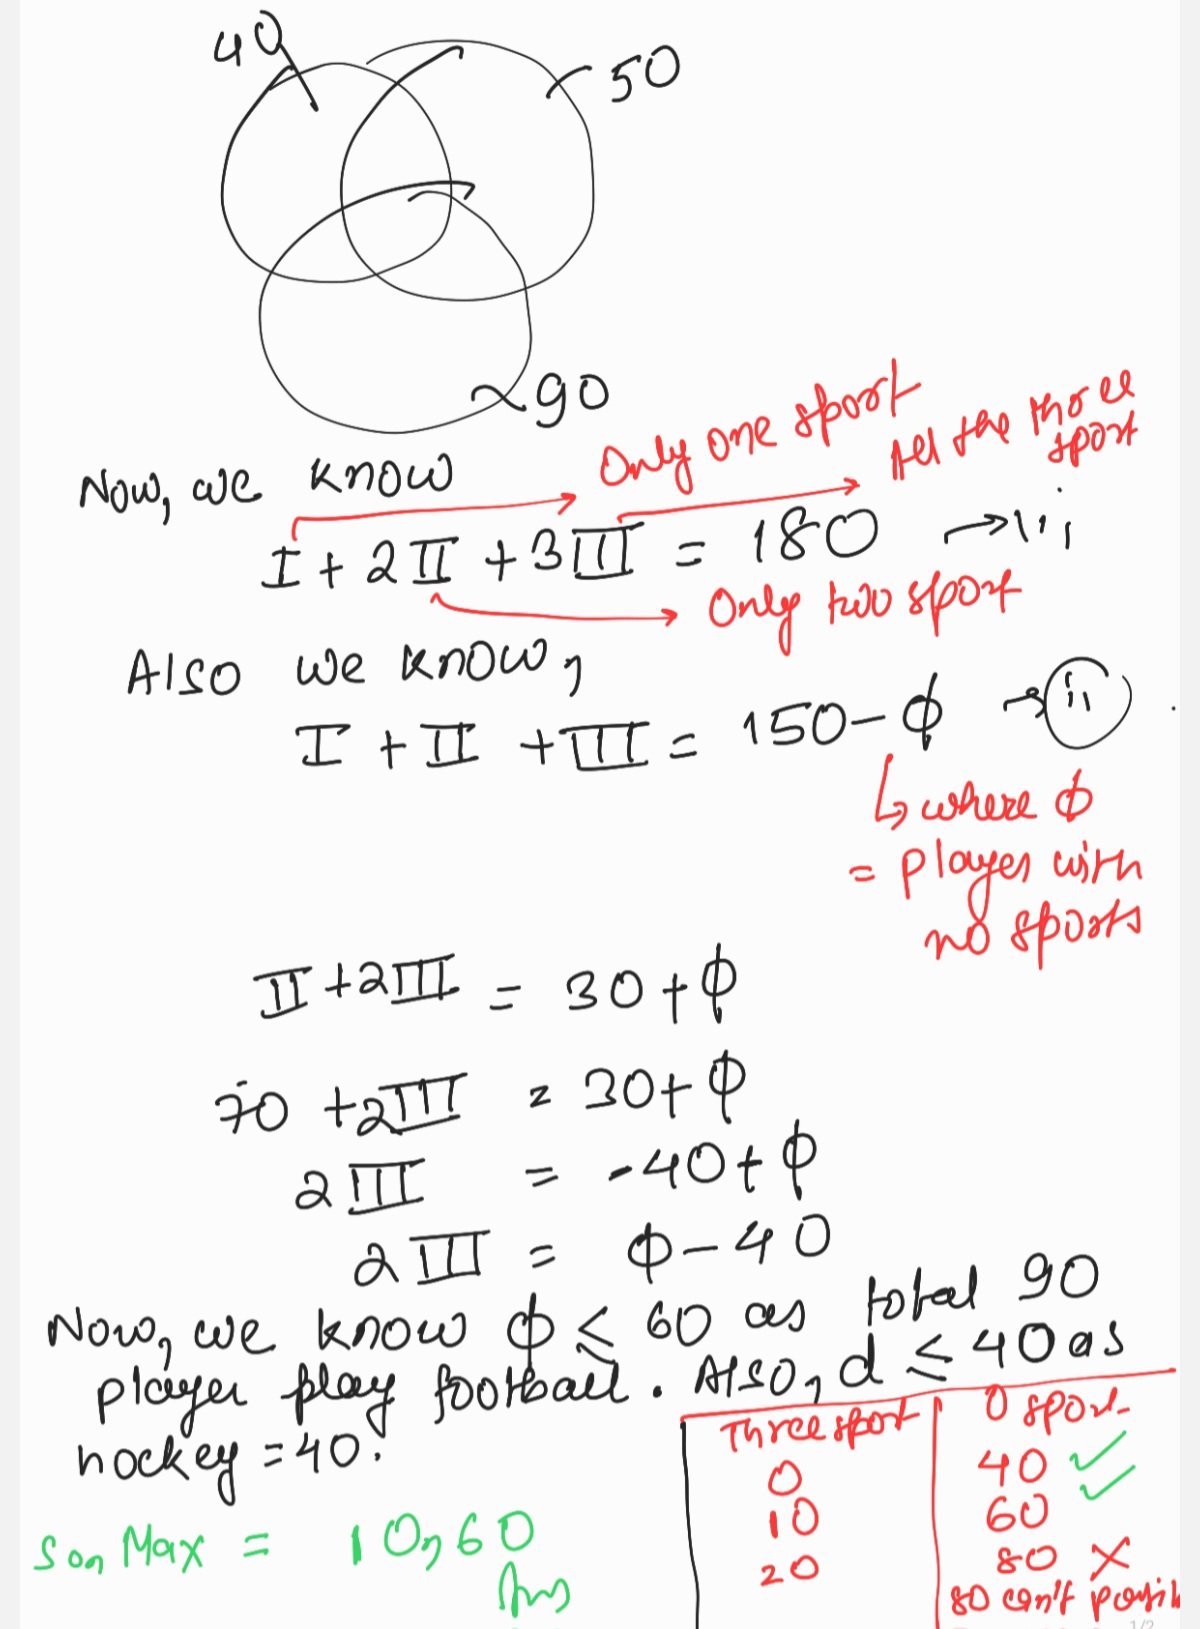 40
50
90
Only one sport
All the three
sport
Now, we know
I + 2II + 3III = 180 → i
Only two sport
Also we know,
I + II + III = 150 - φ → ii
where φ
= player with
no sports
II + 2III = 30 + φ
70 + 2III = 30 + φ
2III = -40 + φ
2III = φ - 40
Now, we know φ ≤ 60 as total 90
player play football. Also, d ≤ 40 as
hockey = 40.
Three sport 0 sport
0 40 ✓
10 60 ✓
20 80 ✗
80 can't possib
So, Max = 10, 60
Ans
1/2